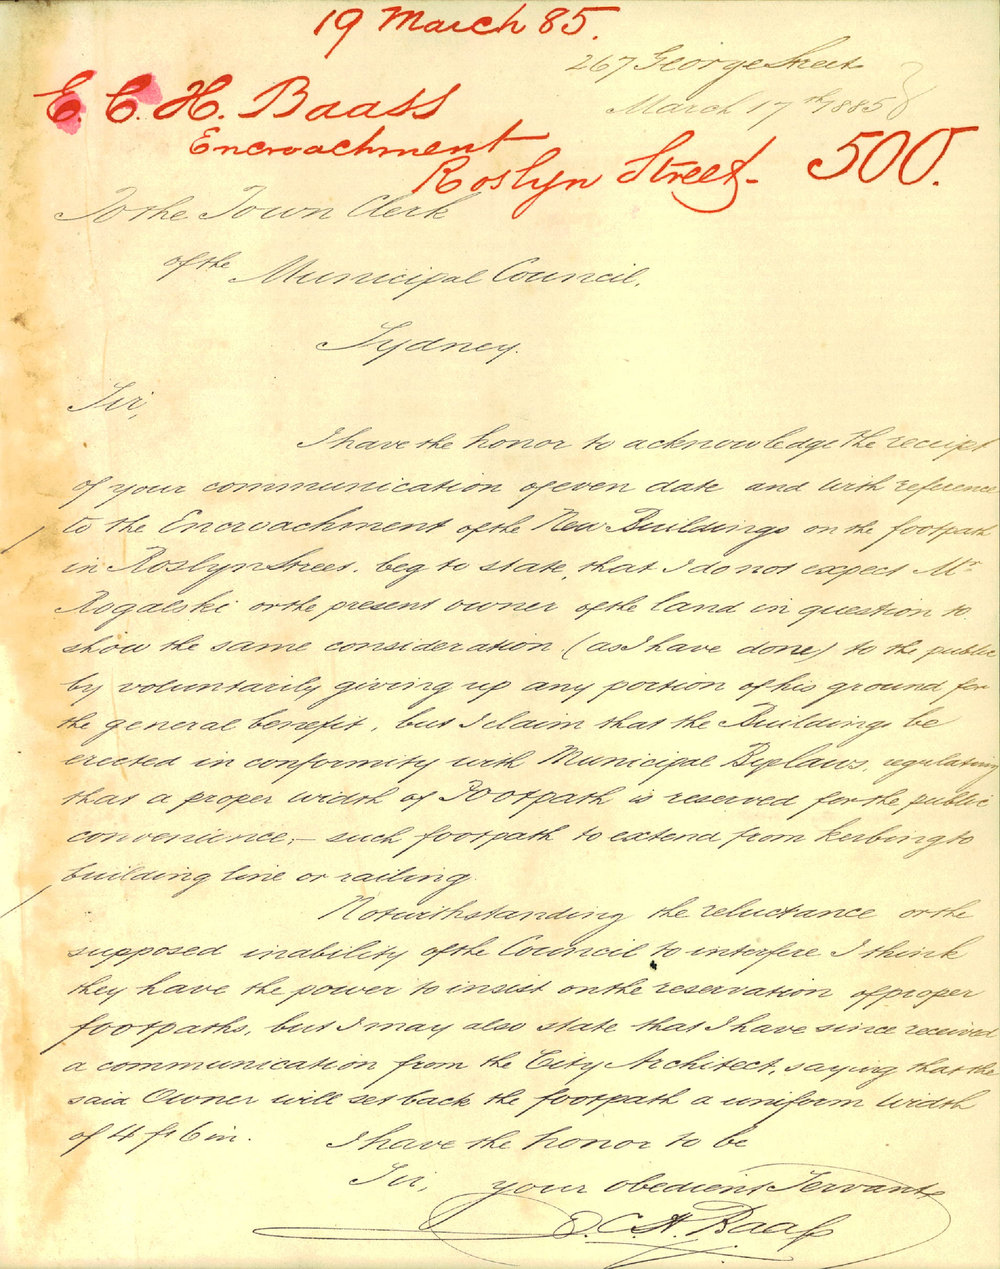 19 March 85.
267 George Street
March 17th 1885
E. C. H. Baass
Encroachment
Roslyn Street. 500.
To the Town Clerk
of the Municipal Council,
Sydney.
Sir,
I have the honor to acknowledge the receipt
of your communication of even date and with reference
to the Encroachment of the New Buildings on the footpath
in Roslyn Street. beg to state, that I do not expect Mr
Rogalski or the present owner of the land in question to
show the same consideration (as I have done) to the public
by voluntarily giving up any portion of his ground for
the general benefit, but I claim that the Buildings be
erected in conformity with Municipal Byelaws, regulating
that a proper width of Footpath is reserved for the public
convenience,- such footpath to extend from kerbing to
building line or railing
Notwithstanding the reluctance or the
supposed inability of the Council to interfere I think
they have the power to insist on the reservation of proper
footpaths, but I may also state that I have since received
a communication from the City Architect, saying that the
said Owner will set back the footpath a uniform width
of 4 ft 6 in. I have the honor to be
Sir, your obedient Servant
E. C. H. Baass